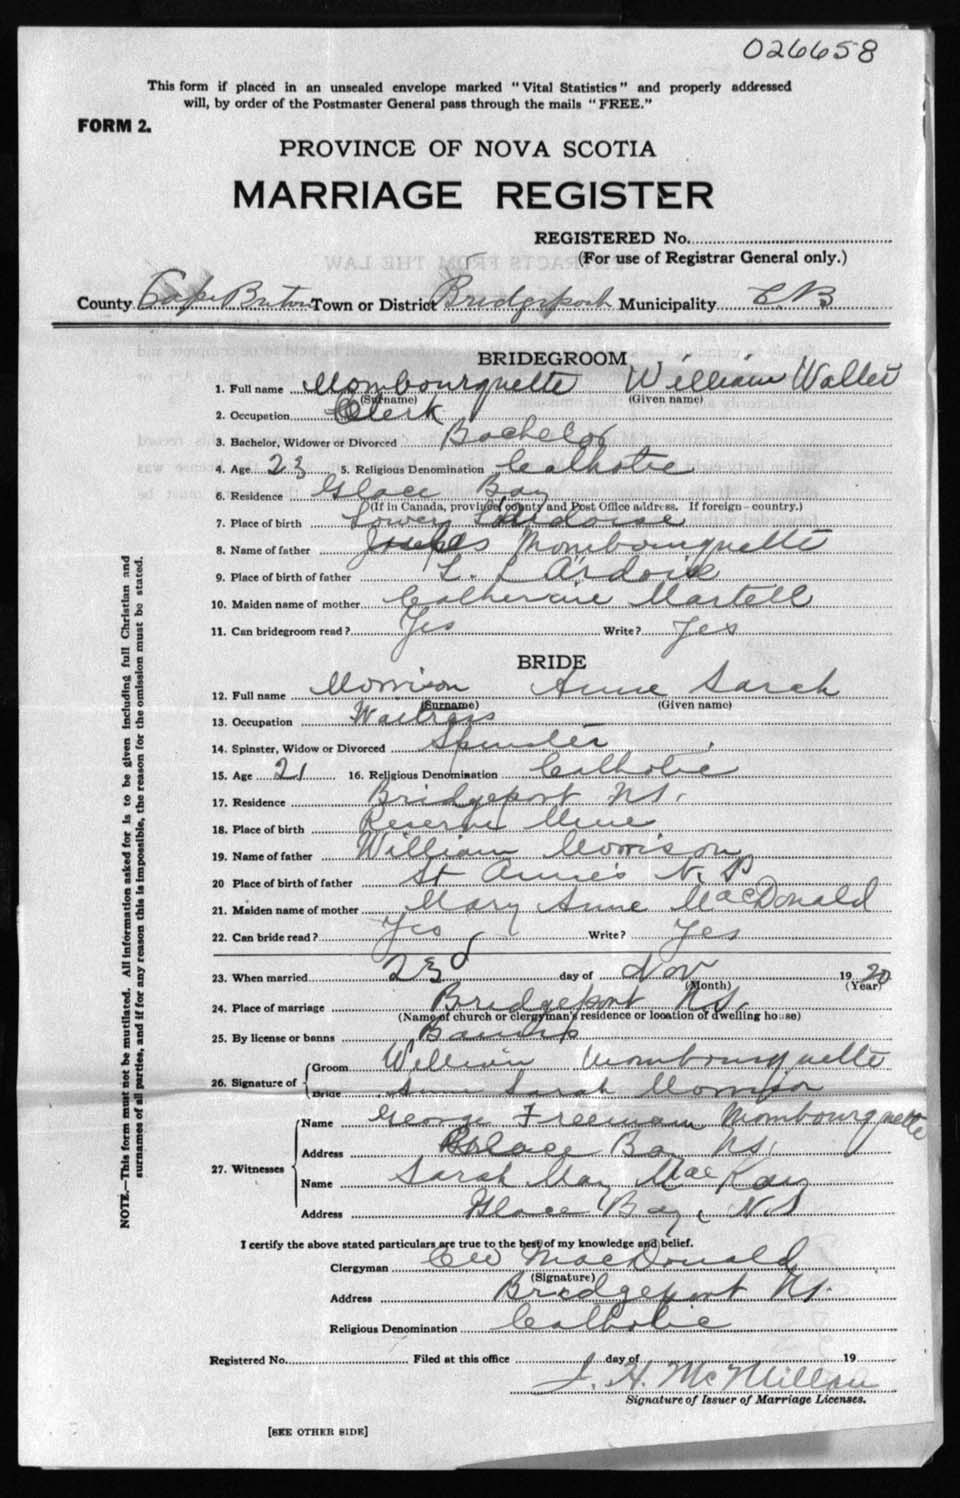 026658
This form if placed in an unsealed envelope marked "Vital Statistics" and properly addressed
will, by order of the Postmaster General pass through the mails "FREE."
FORM 2.
PROVINCE OF NOVA SCOTIA
MARRIAGE REGISTER
REGISTERED No.
(For use of Registrar General only.)
County Cape Breton Town or District Bridgeport Municipality C B
BRIDEGROOM
1. Full name Mombourquette William Walter
(Surname) (Given name)
2. Occupation Clerk
3. Bachelor, Widower or Divorced Bachelor
4. Age 23 5. Religious Denomination Catholic
6. Residence Glace Bay
(If in Canada, province, county and Post Office address. If foreign—country.)
7. Place of birth Lower L'Ardoise
8. Name of father Mombourquette
9. Place of birth of father L. L'Ardoise
10. Maiden name of mother Catherine Martell
11. Can bridegroom read? Yes Write? Yes
BRIDE
12. Full name Morrison Anne Sarah
(Surname) (Given name)
13. Occupation Waitress
14. Spinster, Widow or Divorced Spinster
15. Age 21 16. Religious Denomination Catholic
17. Residence Bridgeport N.S.
18. Place of birth Reserve Mine
19. Name of father William Morrison
20 Place of birth of father St Anne's N.S
21. Maiden name of mother Mary Anne MacDonald
22. Can bride read? Yes Write? Yes
23. When married 23d day of Nov 1920
(Month) (Year)
24. Place of marriage Bridgeport N.S.
(Name of church or clergyman's residence or location of dwelling house)
25. By license or banns Banns
26. Signature of Groom William Mombourquette
Bride Anne Sarah Morrison
27. Witnesses
Name George Freeman Mombourquette
Address Glace Bay N.S.
Name Sarah May MacKay
Address Glace Bay, N.S
I certify the above stated particulars are true to the best of my knowledge and belief.
Clergyman MacDonald
(Signature)
Address Bridgeport N.S.
Religious Denomination Catholic
Registered No. Filed at this office day of 19
J. H. McMillan
Signature of Issuer of Marriage Licenses.
[SEE OTHER SIDE]
NOTE.—This form must not be mutilated. All information asked for is to be given including full Christian and
surnames of all parties, and if for any reason this is impossible, the reason for the omission must be stated.